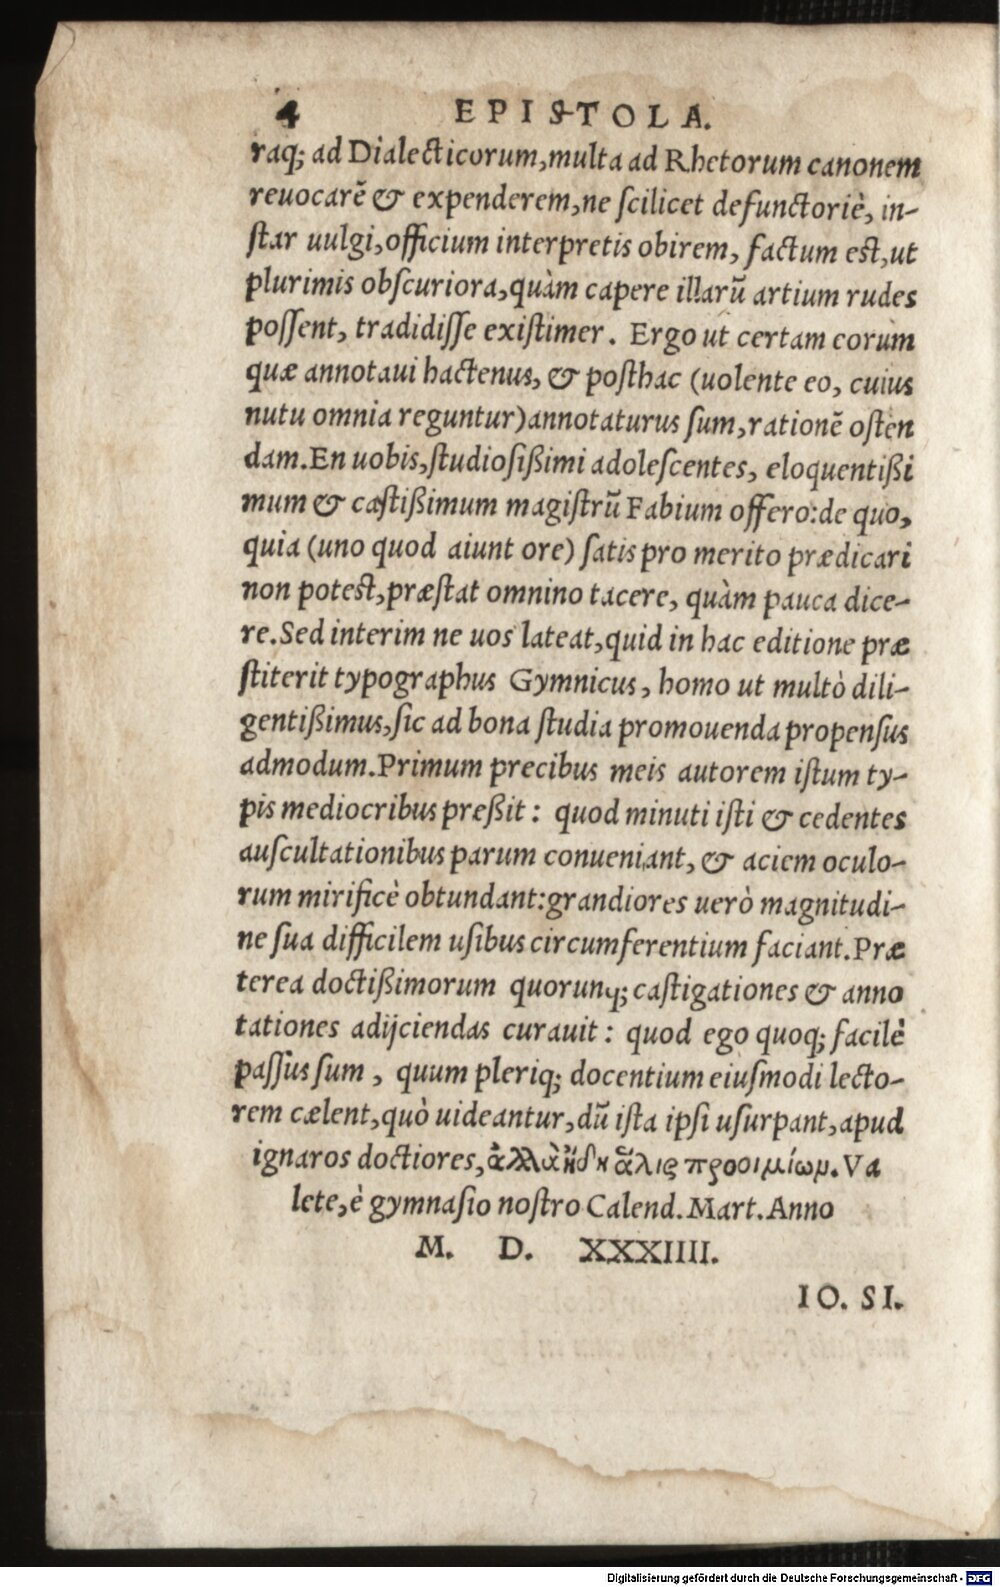 4 EPISTOLA.
raq; ad Dialecticorum, multa ad Rhetorum canonem
reuocarē & expenderem, ne ſcilicet defunctoriè, in-
ſtar uulgi, officium interpretis obirem, factum est, ut
plurimis obſcuriora, quàm capere illarū artium rudes
poſſent, tradidiſſe exiſtimer. Ergo ut certam eorum
quæ annotaui hactenus, & poſthac (uolente eo, cuius
nutu omnia reguntur) annotaturus ſum, rationē oſten
dam. En uobis, ſtudioſißimi adoleſcentes, eloquentißi
mum & caſtißimum magiſtrū Fabium offero: de quo,
quia (uno quod aiunt ore) ſatis pro merito prædicari
non potest, præſtat omnino tacere, quàm pauca dice-
re. Sed interim ne uos lateat, quid in hac editione præ
ſtiterit typographus Gymnicus, homo ut multò dili-
gentißimus, ſic ad bona ſtudia promouenda propenſus
admodum. Primum precibus meis autorem iſtum ty-
pis mediocribus preßit: quod minuti iſti & cedentes
auſcultationibus parum conueniant, & aciem oculo-
rum mirificè obtundant: grandiores uerò magnitudi-
ne ſua difficilem uſibus circumferentium faciant. Præ
terea doctißimorum quorunq; caſtigationes & anno
tationes adijciendas curauit: quod ego quoq; facilè
paſſus ſum, quum pleriq; docentium eiuſmodi lecto-
rem cælent, quò uideantur, dū iſta ipſi uſurpant, apud
ignaros doctiores, ἀλλὰ ἤδη ἅλις προοιμίωμ. Va
lete, è gymnaſio noſtro Calend. Mart. Anno
M. D. XXXIIII.
IO. SI.
Digitalisierung gefördert durch die Deutsche Forschungsgemeinschaft - DFG